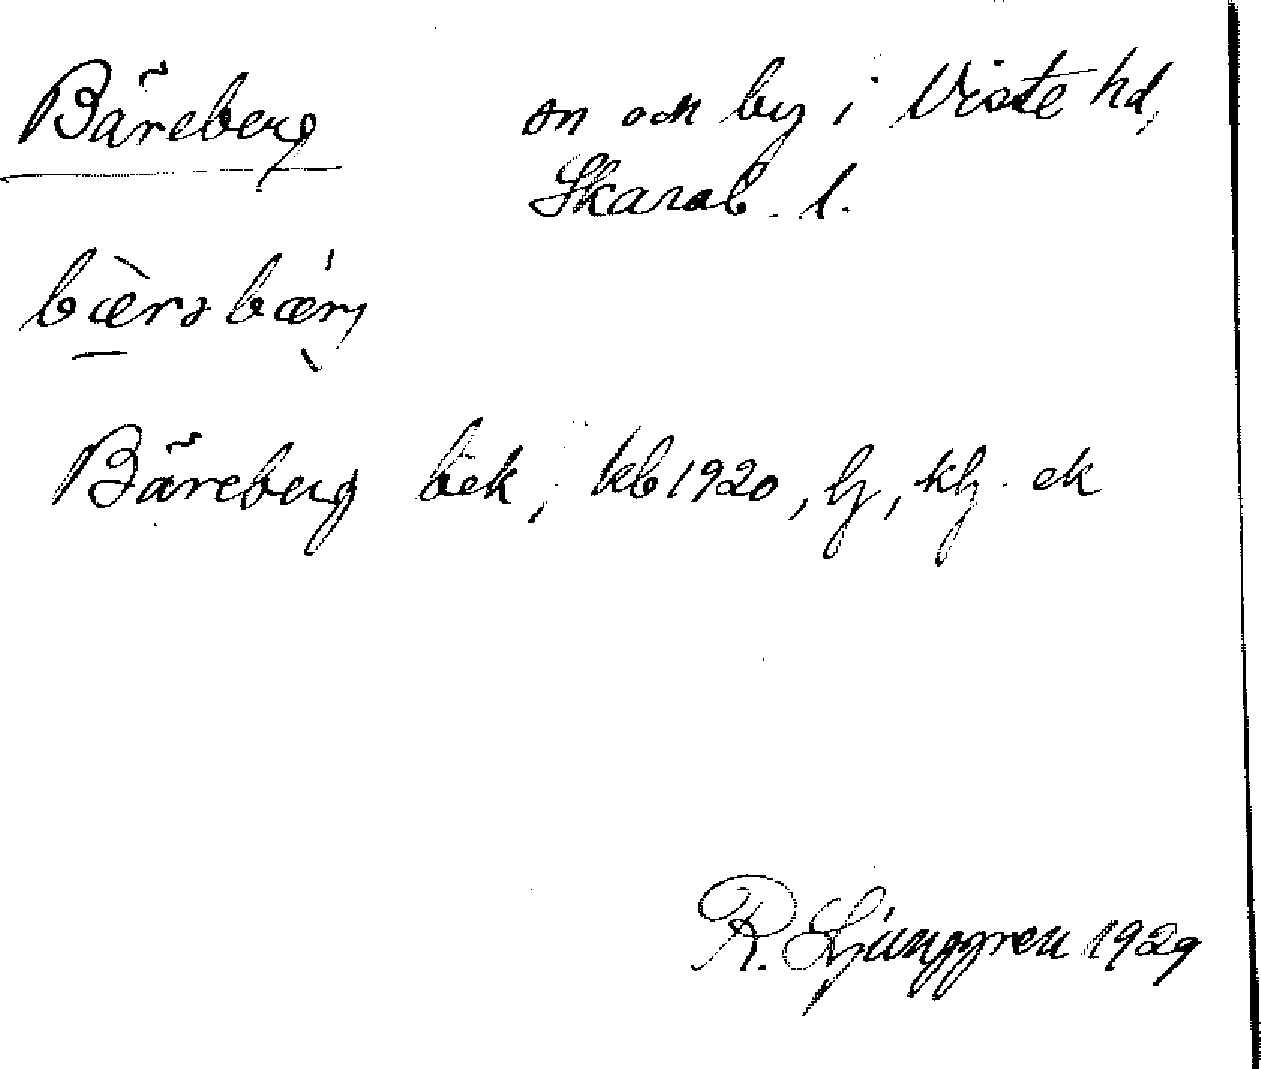 Bäreberg sn och by i Viste hd,
Skarab. l.
bærəbærj
Bäreberg bek, kb 1920, lj, klj. ek
R. Ljunggren 1929